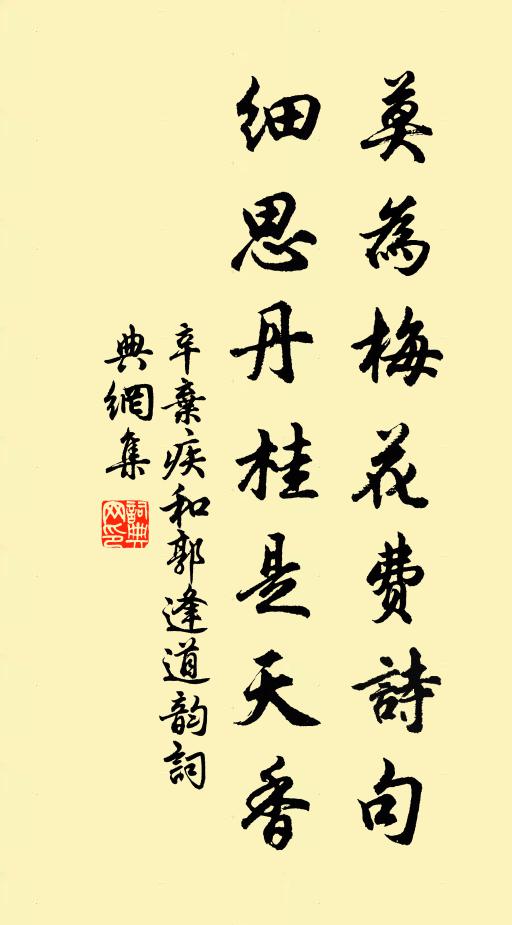 莫為梅花費詩句
細思丹桂是天香
辛棄疾和郭逢道韵詞
典網集
詞典网印